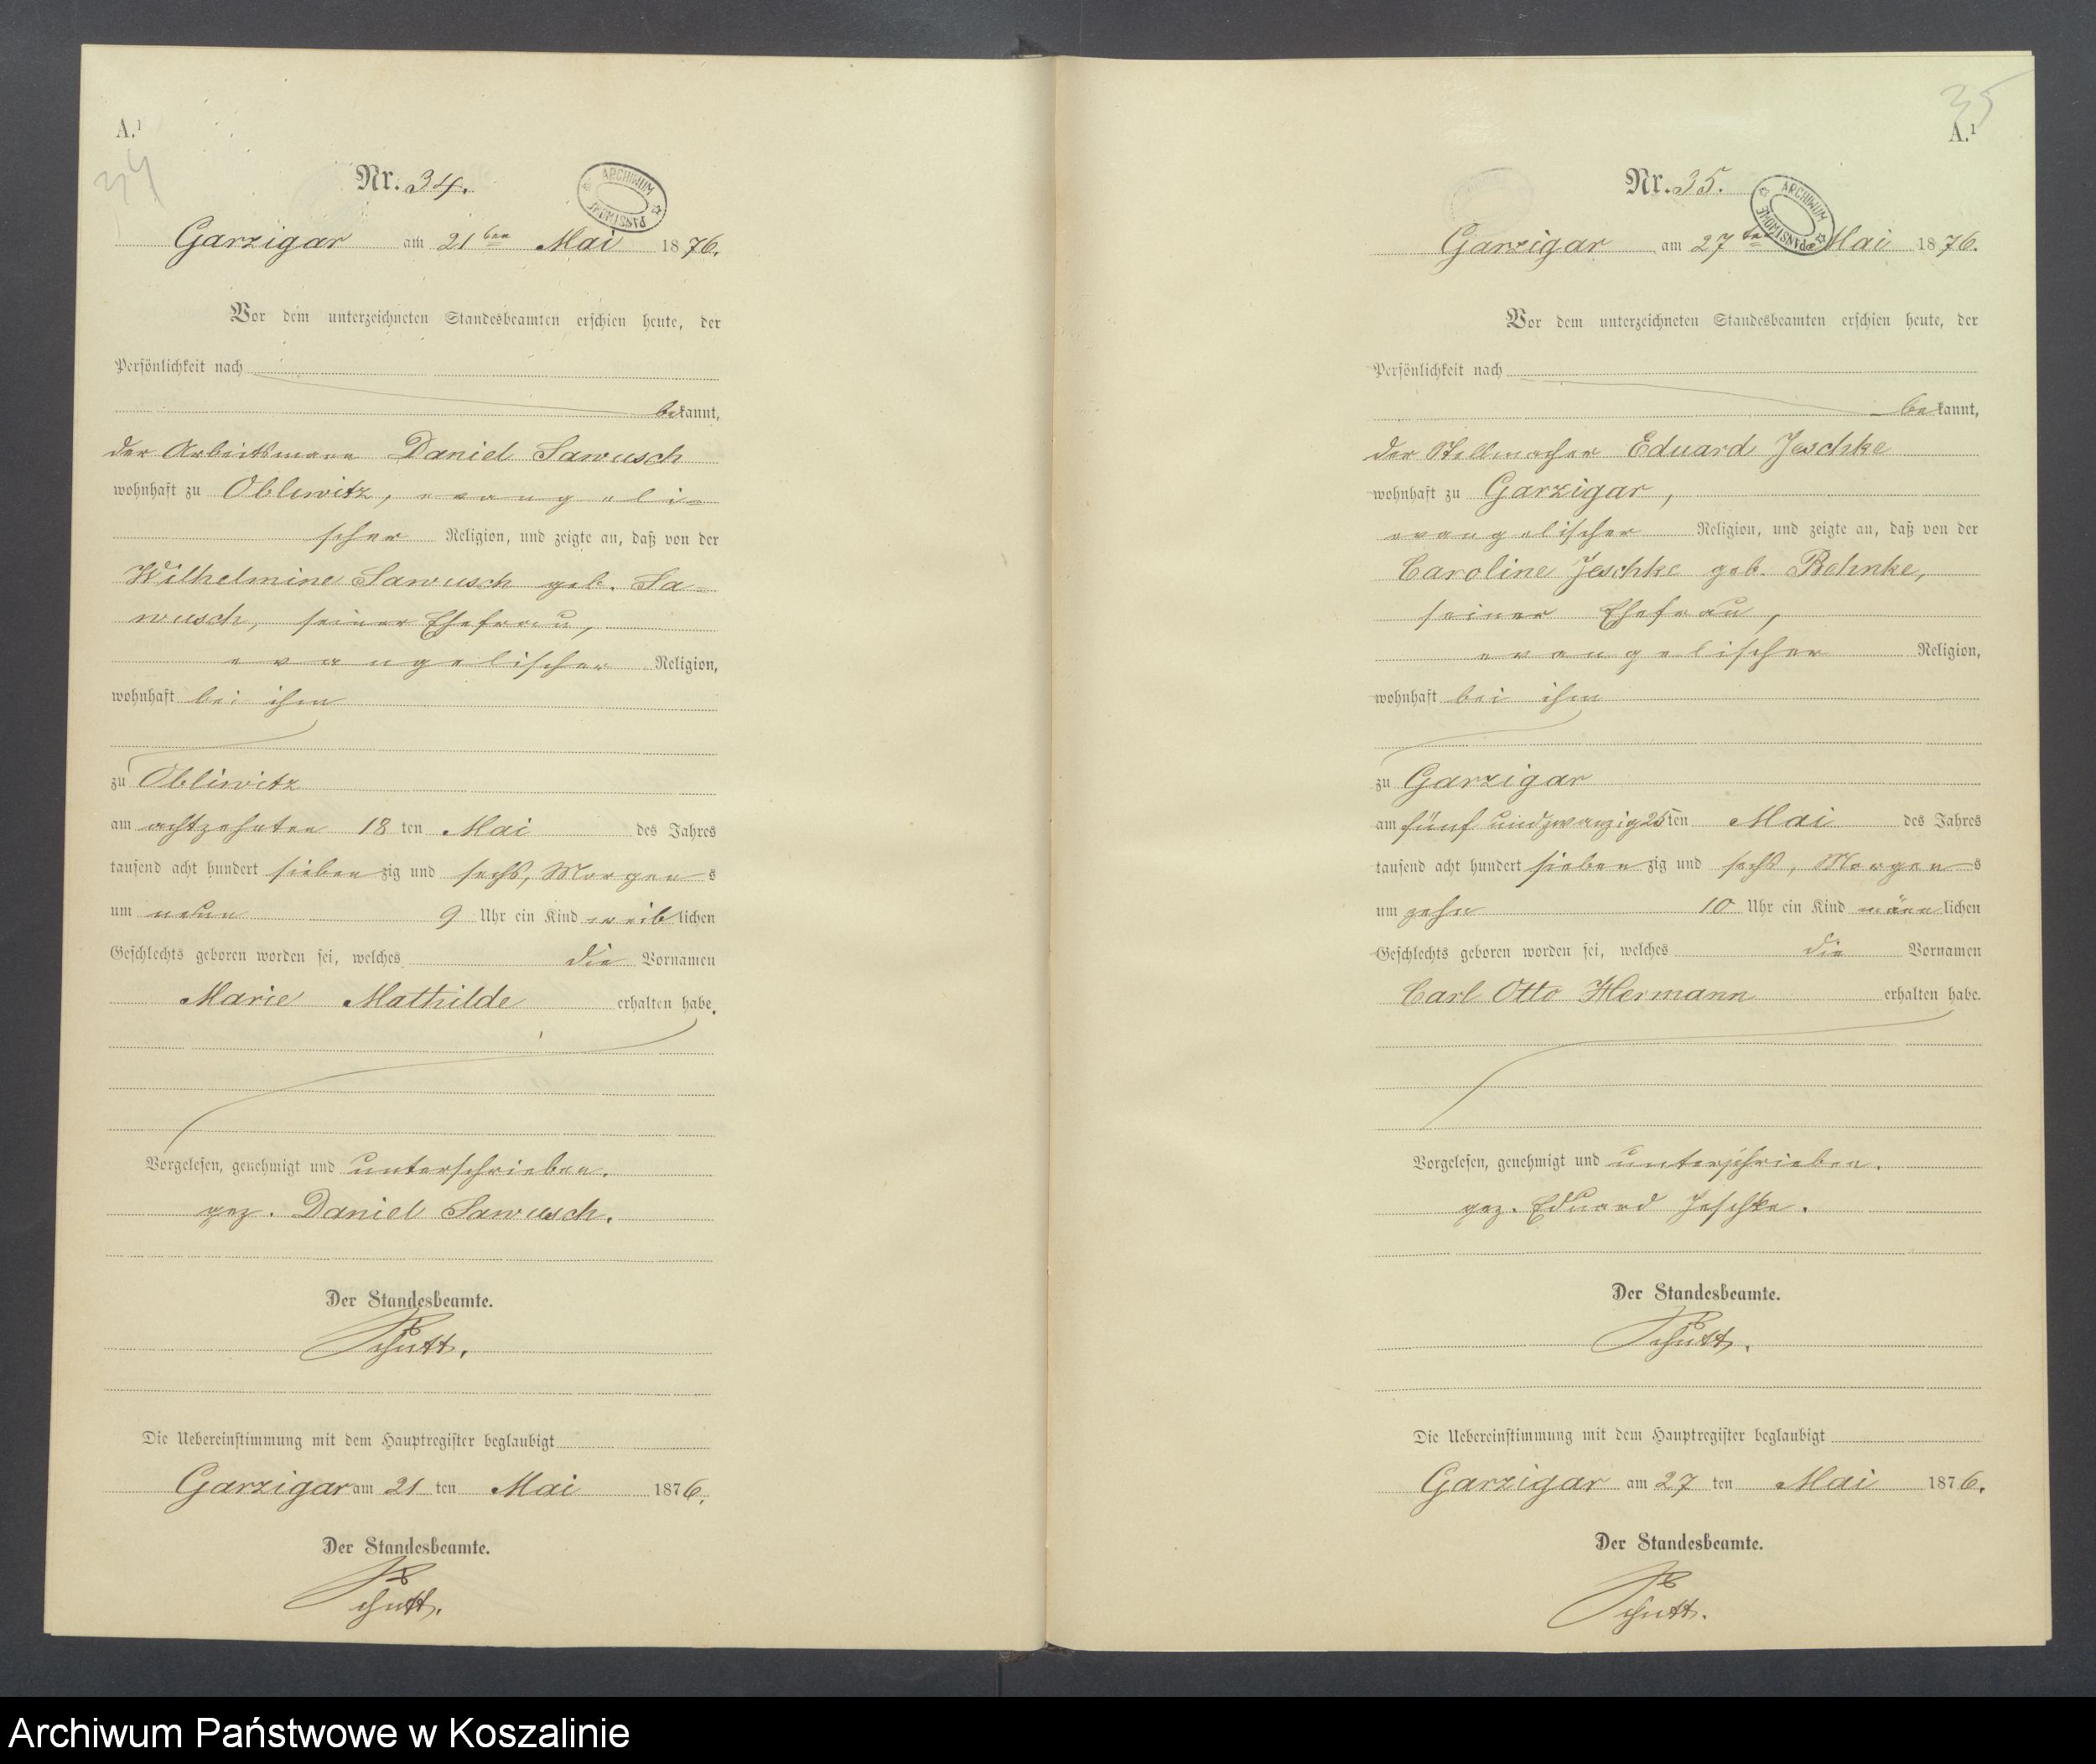 A.¹
34
Nr. 34.
ARCHIWUM PAŃSTWOWE
Garzigar am 21ten Mai 1876.
Vor dem unterzeichneten Standesbeamten erschien heute, der
Persönlichkeit nach
bekannt,
der Arbeitsmann Daniel Sawusch
wohnhaft zu Obliwitz, evangeli=
scher Religion, und zeigte an, daß von der
Wilhelmine Sawusch geb. Sa=
wusch, seiner Ehefrau,
evangelischer Religion,
wohnhaft bei ihm
zu Obliwitz
am achtzehnten 18 ten Mai des Jahres
tausend acht hundert siebenzig und sechs, Morgens
um neun 9 Uhr ein Kind weiblichen
Geschlechts geboren worden sei, welches die Vornamen
Marie Mathilde erhalten habe.
Vorgelesen, genehmigt und unterschrieben.
gez. Daniel Sawusch.
Der Standesbeamte.
Schutt.
Die Uebereinstimmung mit dem Hauptregister beglaubigt
Garzigar am 21 ten Mai 1876.
Der Standesbeamte.
Schutt.
35
A.¹
Nr. 35.
ARCHIWUM PAŃSTWOWE
Garzigar am 27ten Mai 1876.
Vor dem unterzeichneten Standesbeamten erschien heute, der
Persönlichkeit nach
bekannt,
der Stellmacher Eduard Jeschke
wohnhaft zu Garzigar,
evangelischer Religion, und zeigte an, daß von der
Caroline Jeschke geb. Behnke,
seiner Ehefrau,
evangelischer Religion,
wohnhaft bei ihm
zu Garzigar
am fünf und zwanzig 25ten Mai des Jahres
tausend acht hundert siebenzig und sechs, Morgens
um zehn 10 Uhr ein Kind männlichen
Geschlechts geboren worden sei, welches die Vornamen
Carl Otto Hermann erhalten habe.
Vorgelesen, genehmigt und unterschrieben.
gez. Eduard Jeschke.
Der Standesbeamte.
Schutt.
Die Uebereinstimmung mit dem Hauptregister beglaubigt
Garzigar am 27 ten Mai 1876.
Der Standesbeamte.
Schutt.
Archiwum Państwowe w Koszalinie